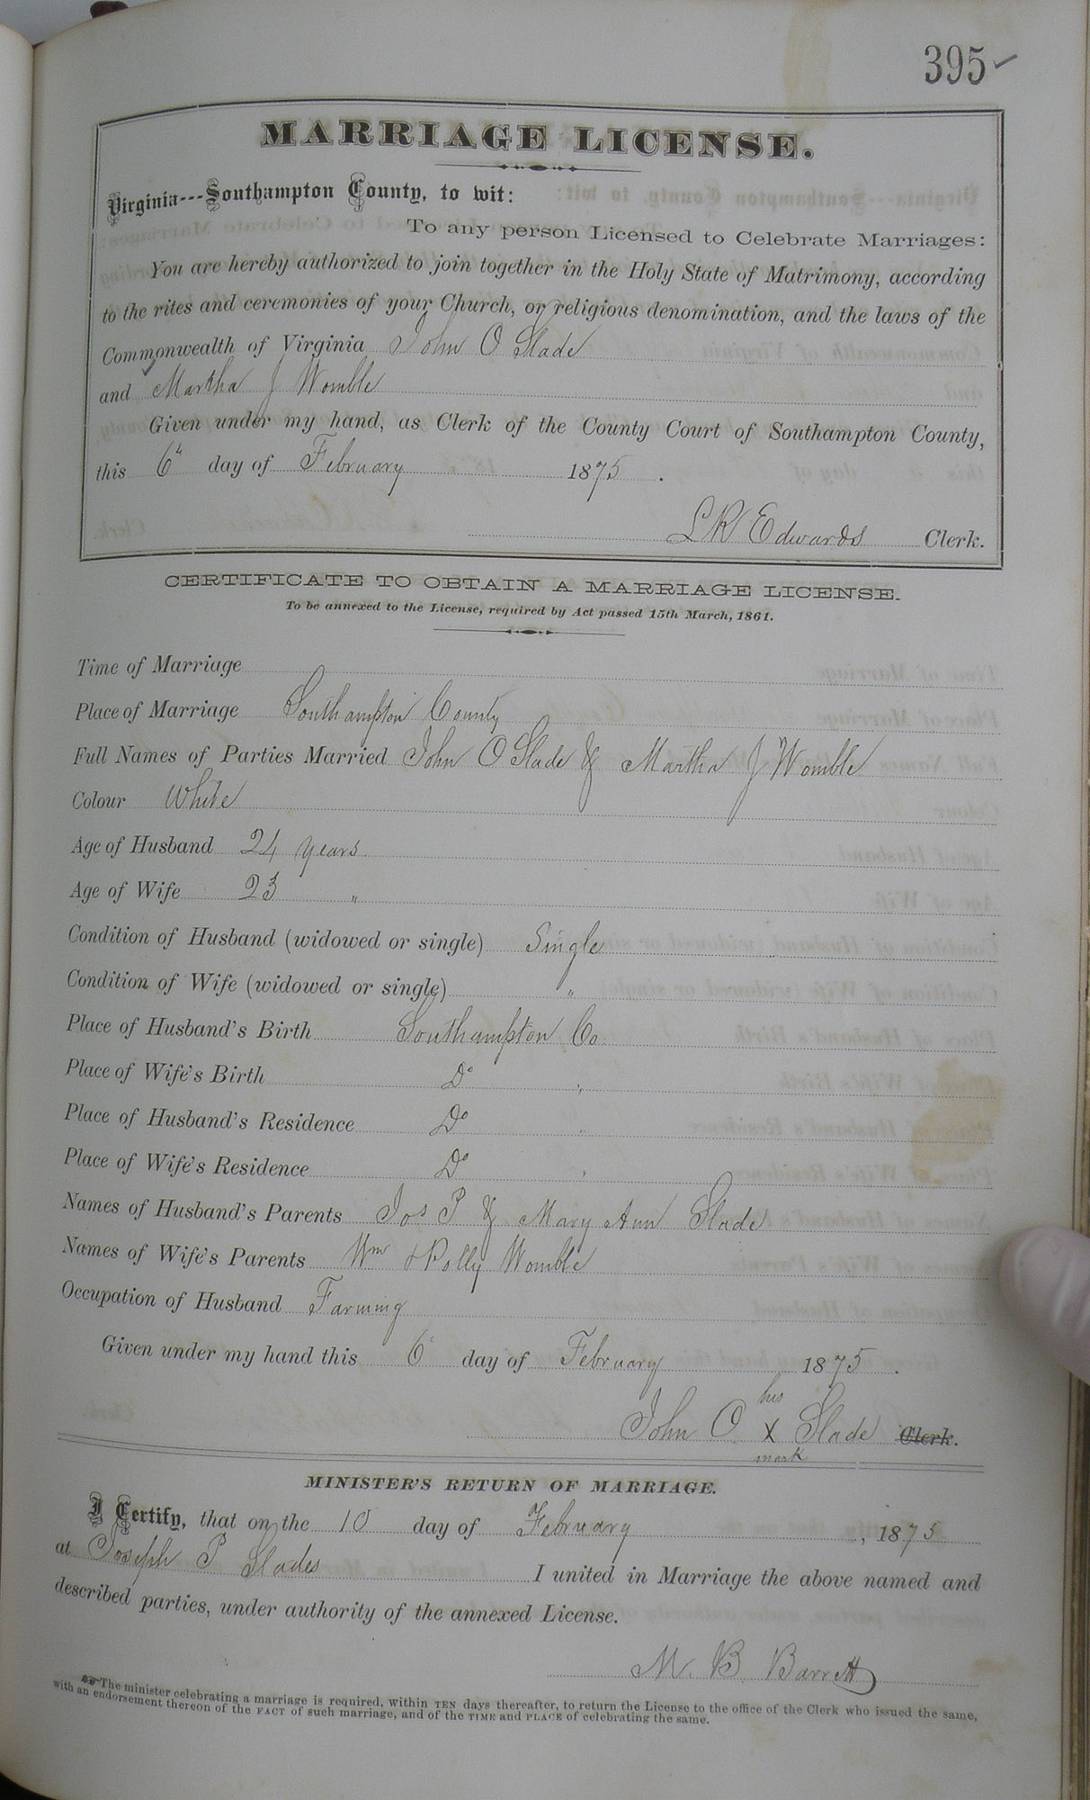 395 ✓
MARRIAGE LICENSE.
Virginia---Southampton County, to wit:
To any person Licensed to Celebrate Marriages:
You are hereby authorized to join together in the Holy State of Matrimony, according
to the rites and ceremonies of your Church, or religious denomination, and the laws of the
Commonwealth of Virginia John O Slade
and Martha J Womble
Given under my hand, as Clerk of the County Court of Southampton County,
this 6" day of February 1875.
L R Edwards Clerk.
CERTIFICATE TO OBTAIN A MARRIAGE LICENSE.
To be annexed to the License, required by Act passed 15th March, 1861.
Time of Marriage
Place of Marriage Southampton County
Full Names of Parties Married John O Slade & Martha J Womble
Colour White
Age of Husband 24 years
Age of Wife 23 "
Condition of Husband (widowed or single) Single
Condition of Wife (widowed or single) "
Place of Husband's Birth Southampton Co
Place of Wife's Birth Do "
Place of Husband's Residence Do "
Place of Wife's Residence Do "
Names of Husband's Parents Jos P & Mary Ann Slade
Names of Wife's Parents Wm & Polly Womble
Occupation of Husband Farming
Given under my hand this 6 day of February 1875.
his
John O X Slade Clerk.
mark
MINISTER'S RETURN OF MARRIAGE.
I Certify, that on the 10 day of February, 1875
at Joseph P Slades I united in Marriage the above named and
described parties, under authority of the annexed License.
M. B. Barrett
☞The minister celebrating a marriage is required, within TEN days thereafter, to return the License to the office of the Clerk who issued the same,
with an endorsement thereon of the FACT of such marriage, and of the TIME and PLACE of celebrating the same.